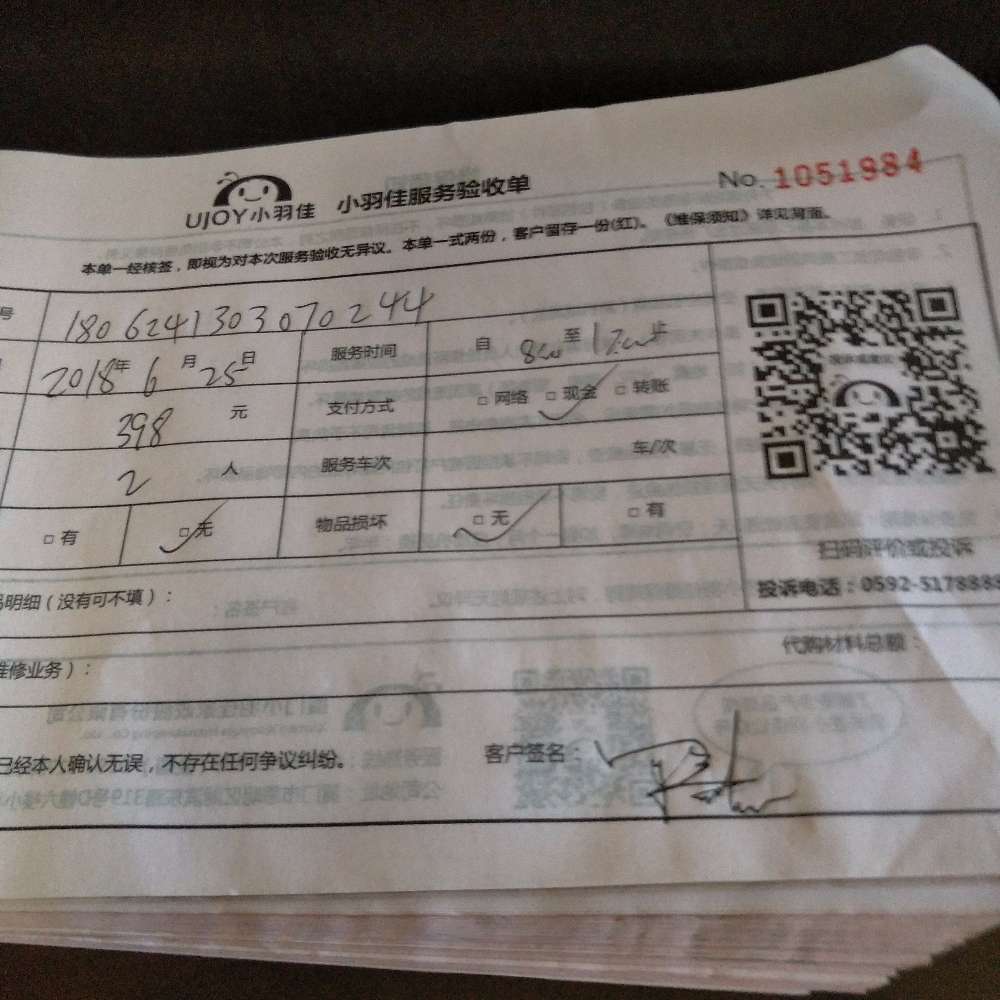 UJOY小羽佳 小羽佳服务验收单 No. 1051984
本单一经核签，即视为对本次服务验收无异议。本单一式两份，客户留存一份(红)。《维保须知》详见背面。
号 1806241303070244
2018年 6 月 25日 服务时间 自 8:00 至 17:00止
398 元 支付方式 □ 网络 □ 现金 □ 转账
2 人 服务车次 车/次
□ 有 □ 无 物品损坏 □ 无 □ 有
扫码评价或投诉
明细（没有可不填）： 投诉电话：0592-5178888
维修业务）： 代购材料总额：
已经本人确认无误，不存在任何争议纠纷。 客户签名：